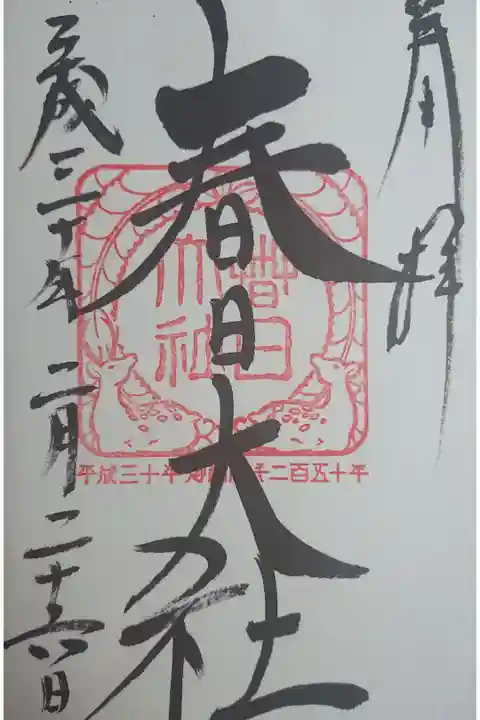 奉拝
春日大社
平成三十年二月二十六日
春日
大社
平成三十年 二百五十年